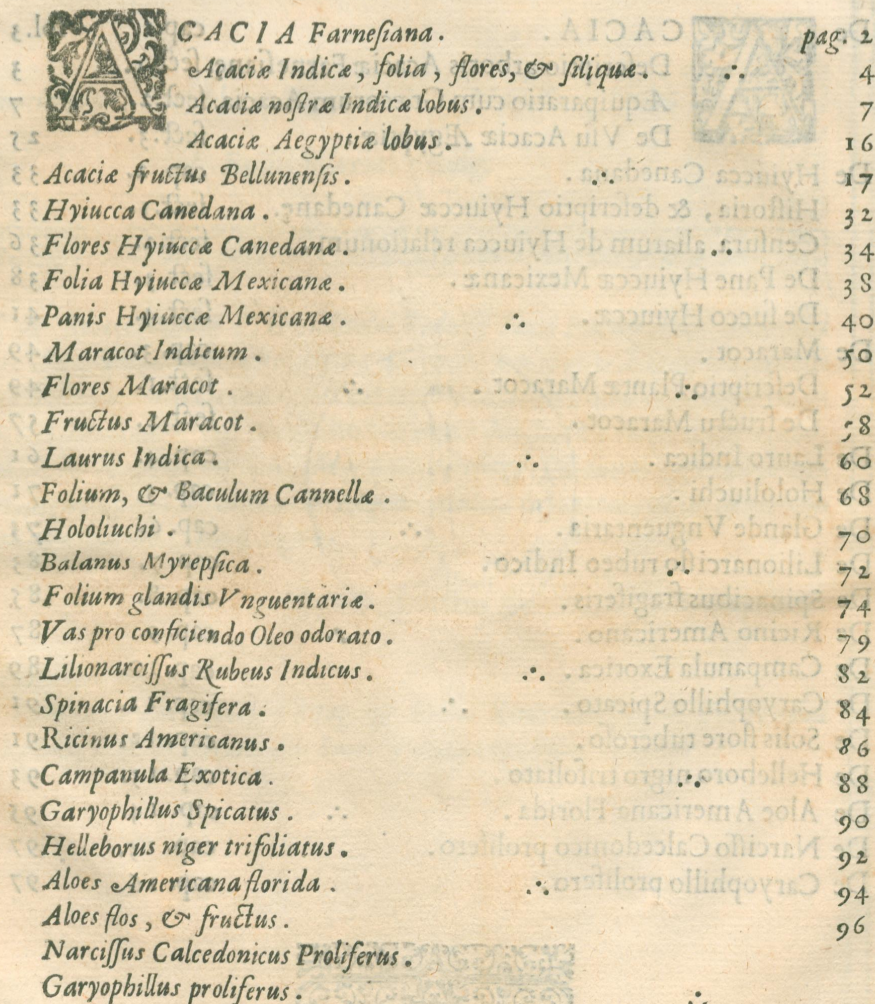 ACACIA Farnesiana. pag. 2
Acaciæ Indicæ, folia, flores, & siliquæ. 4
Acaciæ nostræ Indicæ lobus. 7
Acaciæ Aegyptiæ lobus. 16
Acaciæ fructus Bellunensis. 17
Hyiucca Canedana. 32
Flores Hyiuccæ Canedanæ. 34
Folia Hyiuccæ Mexicanæ. 38
Panis Hyiuccæ Mexicanæ. 40
Maracot Indicum. 50
Flores Maracot. 52
Fructus Maracot. 58
Laurus Indica. 60
Folium, & Baculum Cannellæ. 68
Hololiuchi. 70
Balanus Myrepsica. 72
Folium glandis Vnguentariæ. 74
Vas pro conficiendo Oleo odorato. 79
Lilionarcissus Rubeus Indicus. 82
Spinacia Fragifera. 84
Ricinus Americanus. 86
Campanula Exotica. 88
Garyophillus Spicatus. 90
Helleborus niger trifoliatus. 92
Aloes Americana florida. 94
Aloes flos, & fructus. 96
Narcissus Calcedonicus Proliferus.
Garyophillus proliferus.